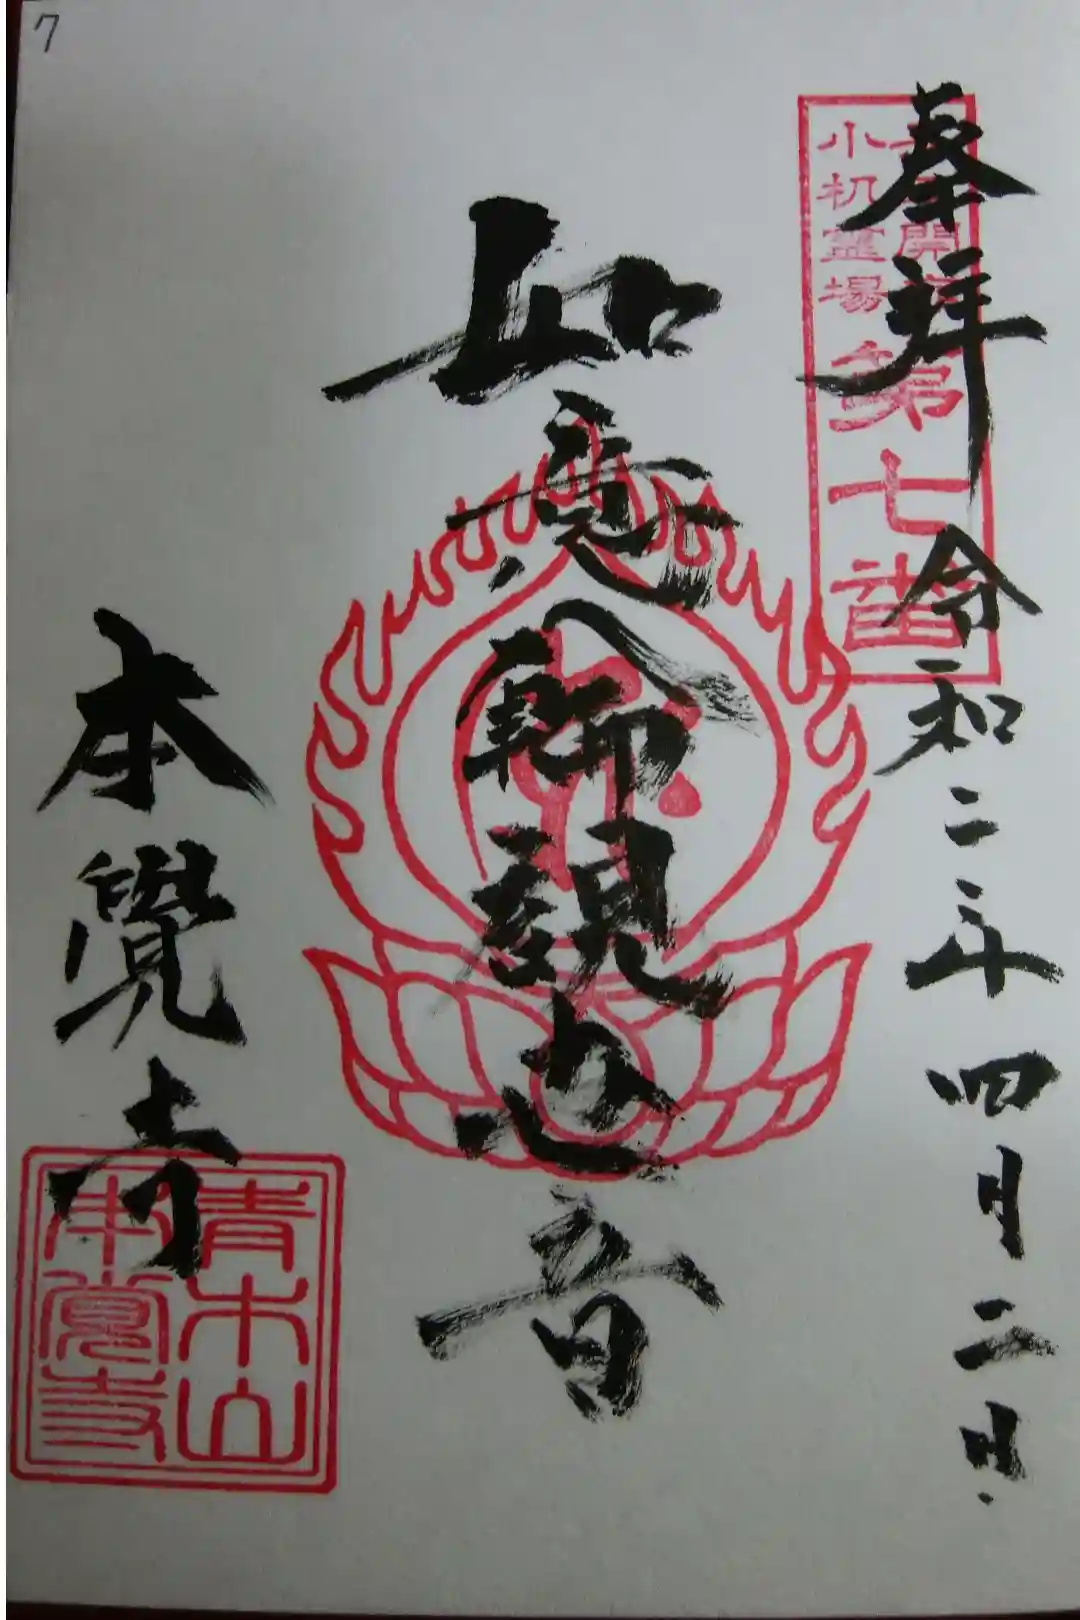 7
奉拝 令和二年四月二日
小机霊場
第七番
如意輪観世音
本覺寺
青木山
本覚寺